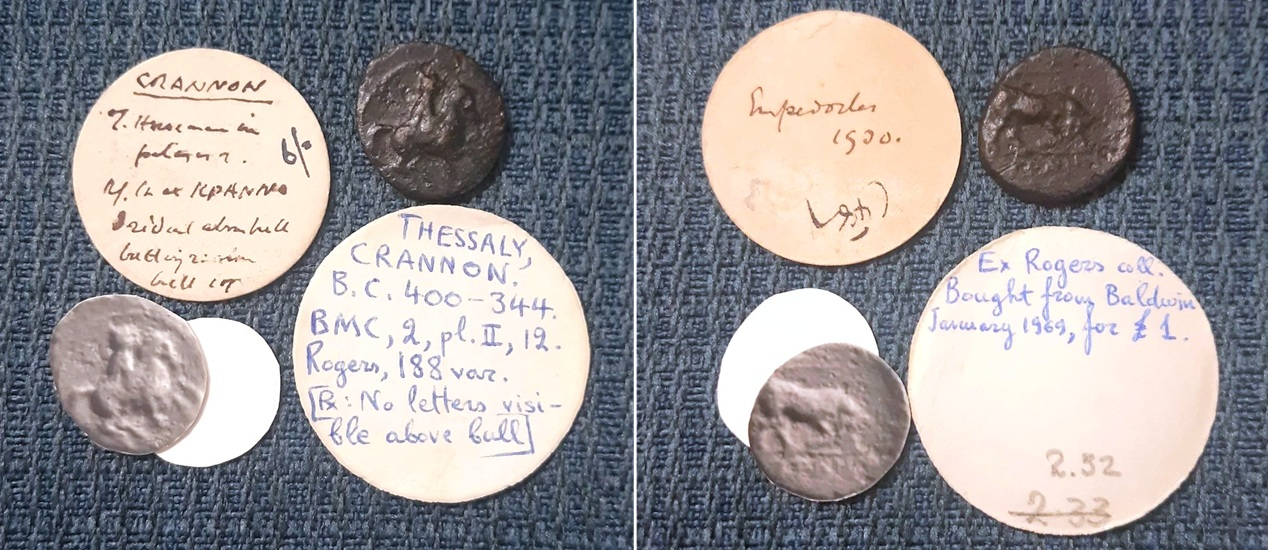 CRANNON
Horseman in
petasus.
6/-
KPANNO
above bull
butting
bull
THESSALY,
CRANNON.
B.C. 400-344.
BMC, 2, pl. II, 12.
Rogers, 188 var.
[R: No letters visi-
ble above bull]
Empedocles
1900.
Ex Rogers coll.
Bought from Baldwin
January 1969, for £ 1.
2.32
2 33